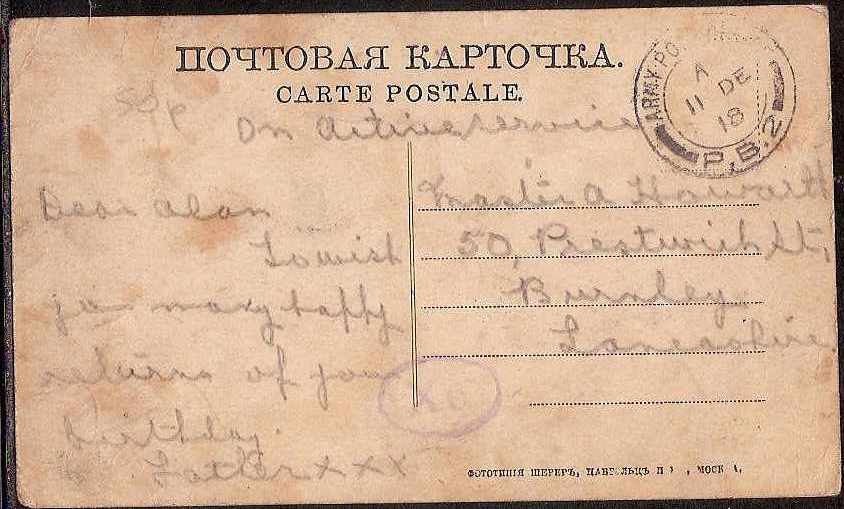 ПОЧТОВАЯ КАРТОЧКА.
CARTE POSTALE.
ARMY PO
A
11 DE
18
P.B.2
On Active service
Dear Alan
To wish
you many happy
returns of your
birthday.
Father x x x
Master A Howarth
50, Prestwich St,
Burnley
Lancashire.
ФОТОТИПІЯ ШЕРЕРЪ, НАБГОЛЬЦЪ И